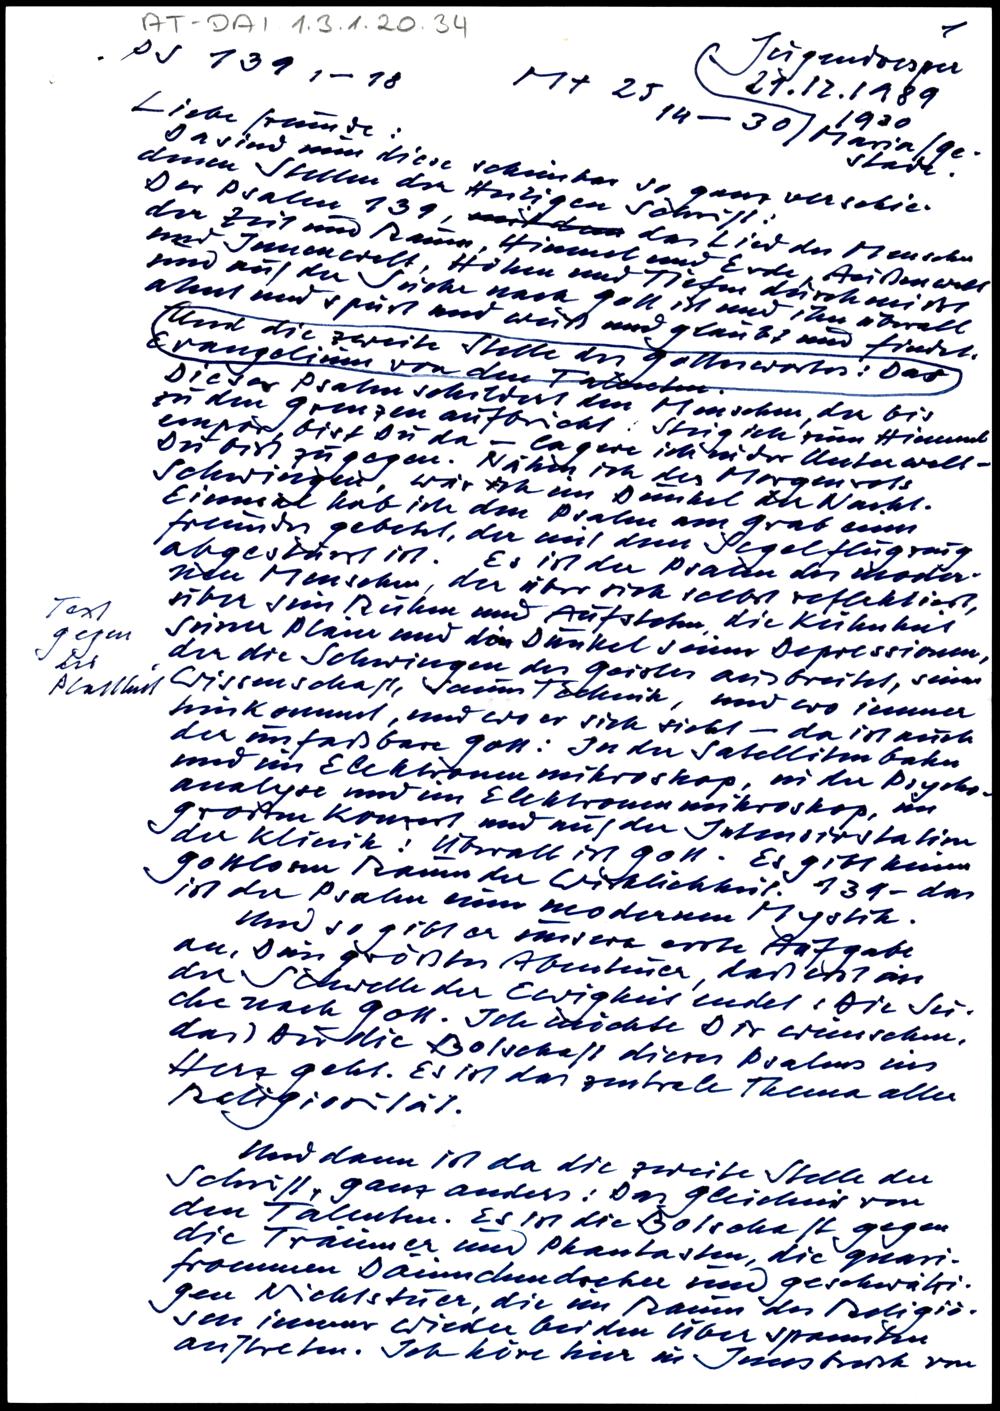 AT-DAI 1.3.1.20.34
1
Ps 139, 1-18   Mt 25
14-30
Jugendvesper
29.12.1989
1930
Maria/Ge-
stade.
Liebe Freunde!
Da sind nun diese scheinbar so ganz verschie-
denen Stellen der Heiligen Schrift:
Der Psalm 139, das Lied des Menschen
der Zeit und Raum, Himmel und Erde, Außenwelt
und Innenwelt, Höhen und Tiefen durchmißt
und auf der Suche nach Gott ist und ihn überall
ahnt und spürt und weiß und glaubt und findet.
Und die zweite Stelle des Gotteswortes: Das
Evangelium von den Talenten.
Dieser Psalm schildert den Menschen, der bis
zu den Grenzen aufbricht: Steig ich zum Himmel
empor, bist Du da – lagere ich in der Unterwelt –
Du bist zugegen. Nähm ich des Morgenrots
Schwingen, wär ich im Dunkel der Nacht.
Einmal hab ich den Psalm am Grab eines
Freundes gebetet, der mit dem Segelflugzeug
abgestürzt ist. Es ist der Psalm des moder-
nen Menschen, der über sich selbst reflektiert,
über sein Ruhen und Aufstehn, die Kühnheit
seiner Pläne und das Dunkel seiner Depressionen,
der die Schwingen des Geistes ausbreitet, seine
Wissenschaft, seine Technik, und wo immer
hinkommt, und wo er sich sieht – da ist auch
der unfaßbare Gott: In der Satellitenbahn
und im Elektronenmikroskop, in der Psycho-
analyse und im Elektronenmikroskop, im
großen Konzert und auf der Intensivstation
der Klinik: Überall ist Gott. Es gibt keinen
gottlosen Raum der Wirklichkeit. 139 – das
ist der Psalm einer modernen Mystik.
Text
gegen
die
Plattheit
Und so gibt er unsere erste Aufgabe
an, Dein größtes Abenteuer, das erst an
der Schwelle der Ewigkeit endet: Die Su-
che nach Gott. Ich möchte Dir wünschen,
daß Dir die Botschaft dieses Psalms ins
Herz geht. Es ist das zentrale Thema aller
Religiosität.
Und dann ist da die zweite Stelle der
Schrift, ganz anders: Das Gleichnis von
den Talenten. Es ist die Botschaft gegen
die Träumer und Phantasten, die quasi-
frommen Däumchendreher und geschwätzi-
gen Nichtstuer, die im Raum des Religiö-
sen immer wieder bei den Überspannten
auftreten. Ich höre hier in Innsbruck von